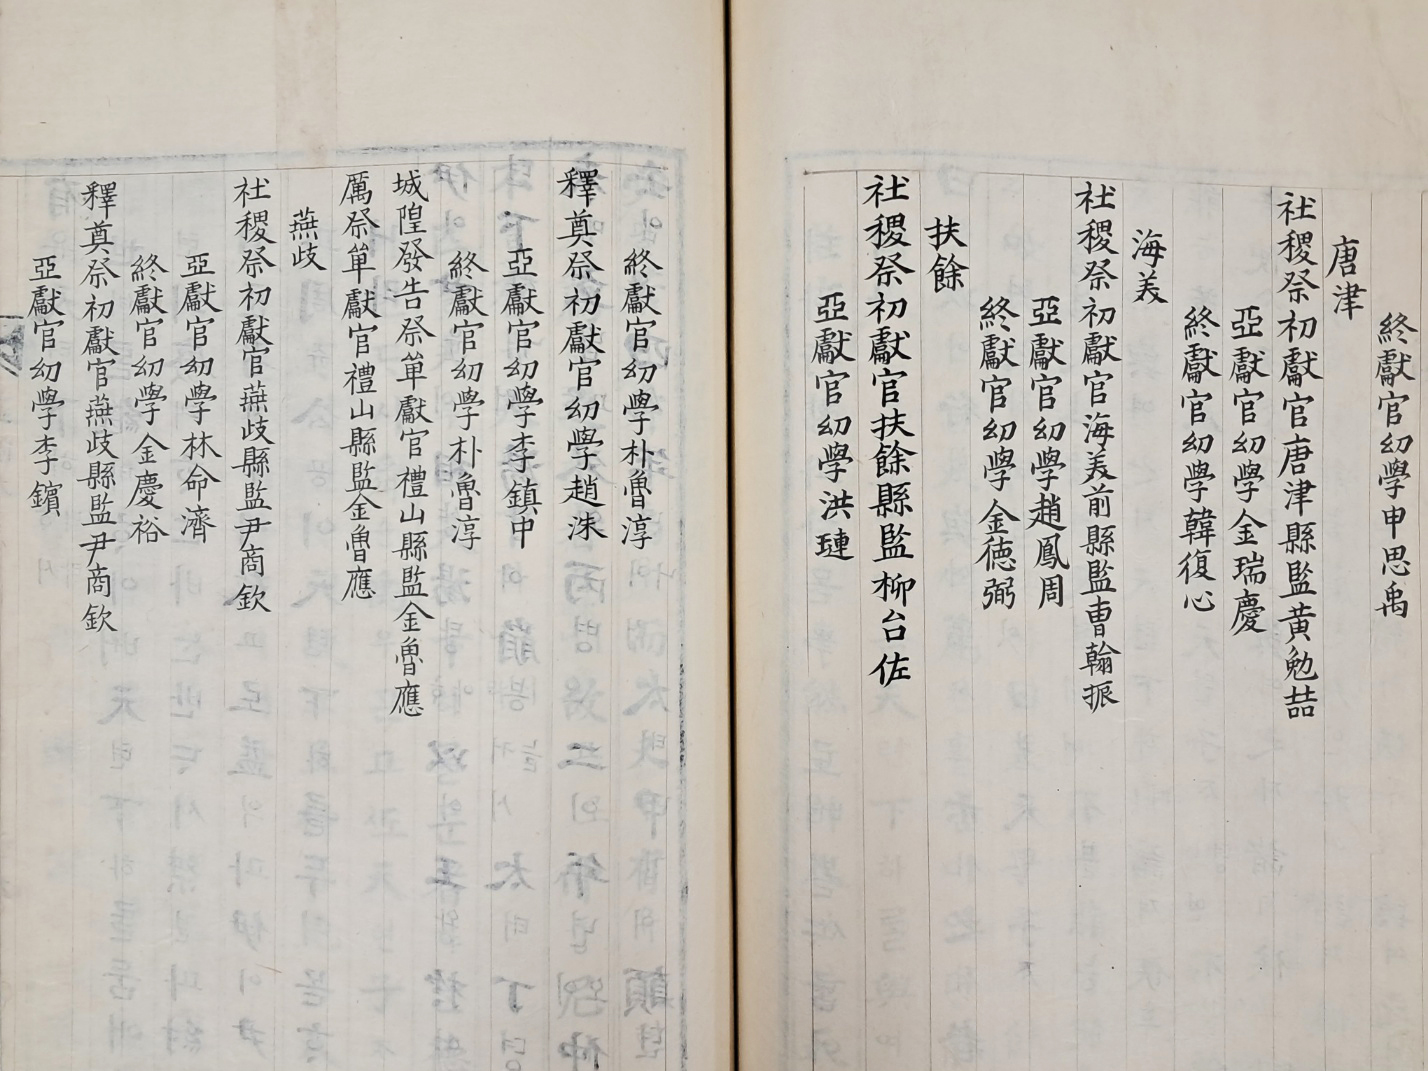 終獻官幼學申思禹
唐津
社稷祭初獻官唐津縣監黃勉喆
亞獻官幼學金瑞慶
終獻官幼學韓復心
海美
社稷祭初獻官海美前縣監曺翰振
亞獻官幼學趙鳳周
終獻官幼學金德弼
扶餘
社稷祭初獻官扶餘縣監柳台佐
亞獻官幼學洪璉
終獻官幼學朴魯淳
釋奠祭初獻官幼學趙洙
亞獻官幼學李鎮中
終獻官幼學朴魯淳
城隍發告祭單獻官禮山縣監金魯應
厲祭單獻官禮山縣監金魯應
燕歧
社稷祭初獻官燕歧縣監尹商欽
亞獻官幼學林命濟
終獻官幼學金慶裕
釋奠祭初獻官燕歧縣監尹商欽
亞獻官幼學李鑌